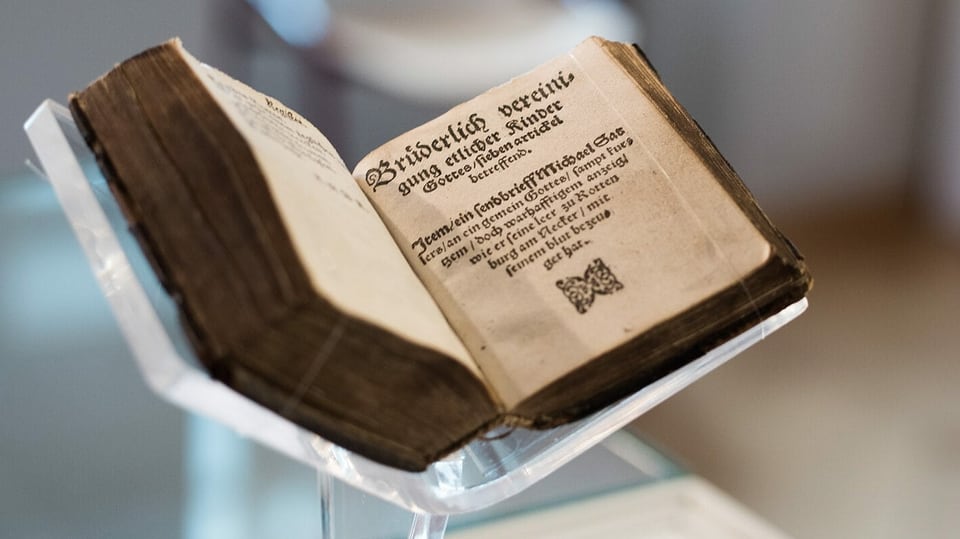 Register
Brüderlich vereini⸗
gung etlicher Kinder
Gottes/sieben artickel
betreffend.
Item/ein sendbrieff Michael Sat
lers/an ein gemein Gottes/sampt kur⸗
tzem/doch warhafftigem anzeig/
wie er seine leer zu Rotten
burg am Necker/mit
seinem blut bezeu⸗
get hat.